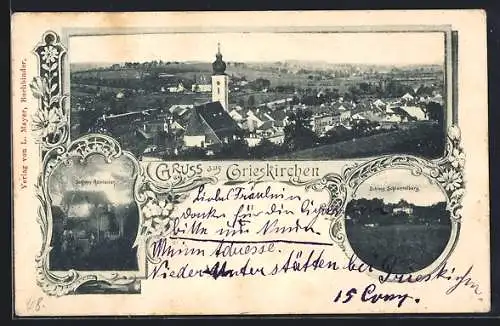 Verlag von L. Mayer, Buchbinder.
Gruss aus Grieskirchen
Schloss
Schloss Schlüsselberg.
Liebes Fräulein
danke für die
bitte um
Meine Adresse.
Nieder Unterstätten bei Grieskirchen
15
68.